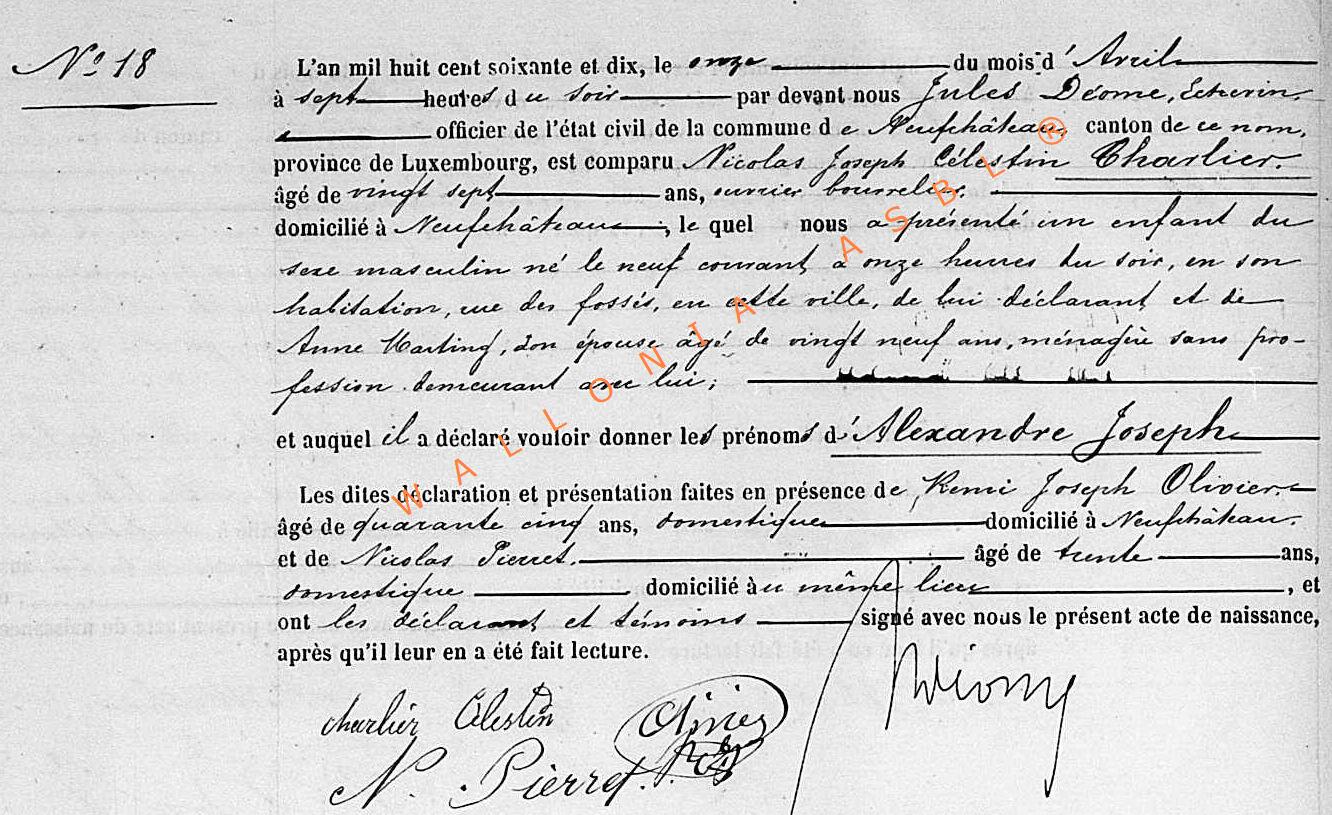 N° 18
L'an mil huit cent soixante et dix, le onze du mois d'Avril
à sept heures du soir par devant nous Jules Déome, Echevin,
officier de l'état civil de la commune de Neufchâteau, canton de ce nom,
province de Luxembourg, est comparu Nicolas Joseph Célestin Charlier
âgé de vingt sept ans, ouvrier bourrelier,
domicilié à Neufchâteau, le quel nous a présenté un enfant du
sexe masculin né le neuf courant à onze heures du soir, en son
habitation, rue des fossés, en cette ville, de lui déclarant et de
Anne Marting, son épouse âgé de vingt neuf ans, ménagère sans pro-
fession demeurant avec lui;
et auquel il a déclaré vouloir donner les prénoms d'Alexandre Joseph
Les dites déclaration et présentation faites en présence de Remi Joseph Olivier
âgé de quarante cinq ans, domestique domicilié à Neufchâteau.
et de Nicolas Pierret. âgé de trente ans,
domestique domicilié au même lieu, et
ont les déclarant et témoins signé avec nous le présent acte de naissance,
après qu'il leur en a été fait lecture.
charlier Célestin
N. Pierret
WALLONIA ASBL ®